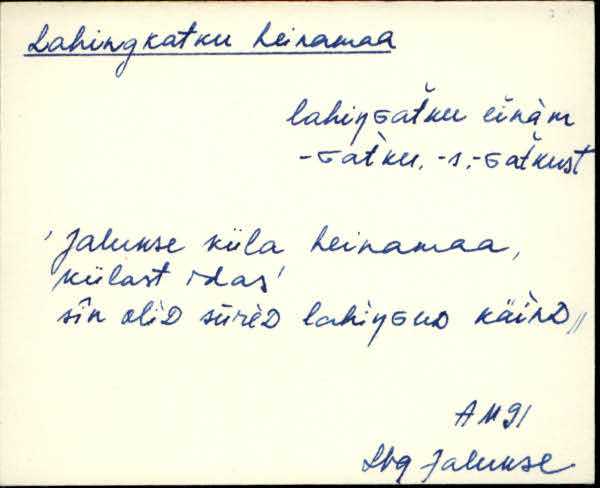 Lahingkatku heinamaa
lahiŋɢaťku eìnàm
-ɢaťku, -s, -ɢaťkust
' Jalukse küla heinamaa,
külast idas'
sîn oliD sūrèD lahiŋɢuD käìnD //
AM 91
Lbg Jalukse